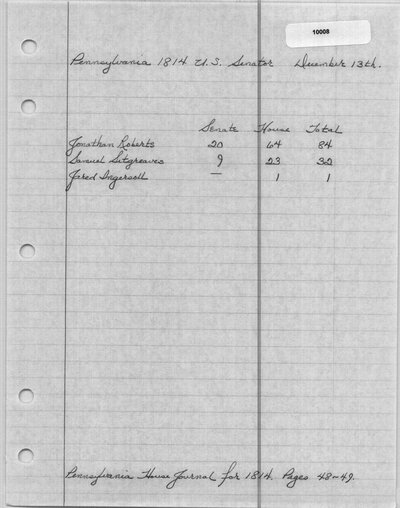 10008
Pennsylvania 1814 U.S. Senator December 13th.
Senate House Total
Jonathan Roberts 20 64 84
Samuel Sitgreaves 9 23 32
Jared Ingersoll — 1 1
Pennsylvania House Journal for 1814. Pages 48-49.